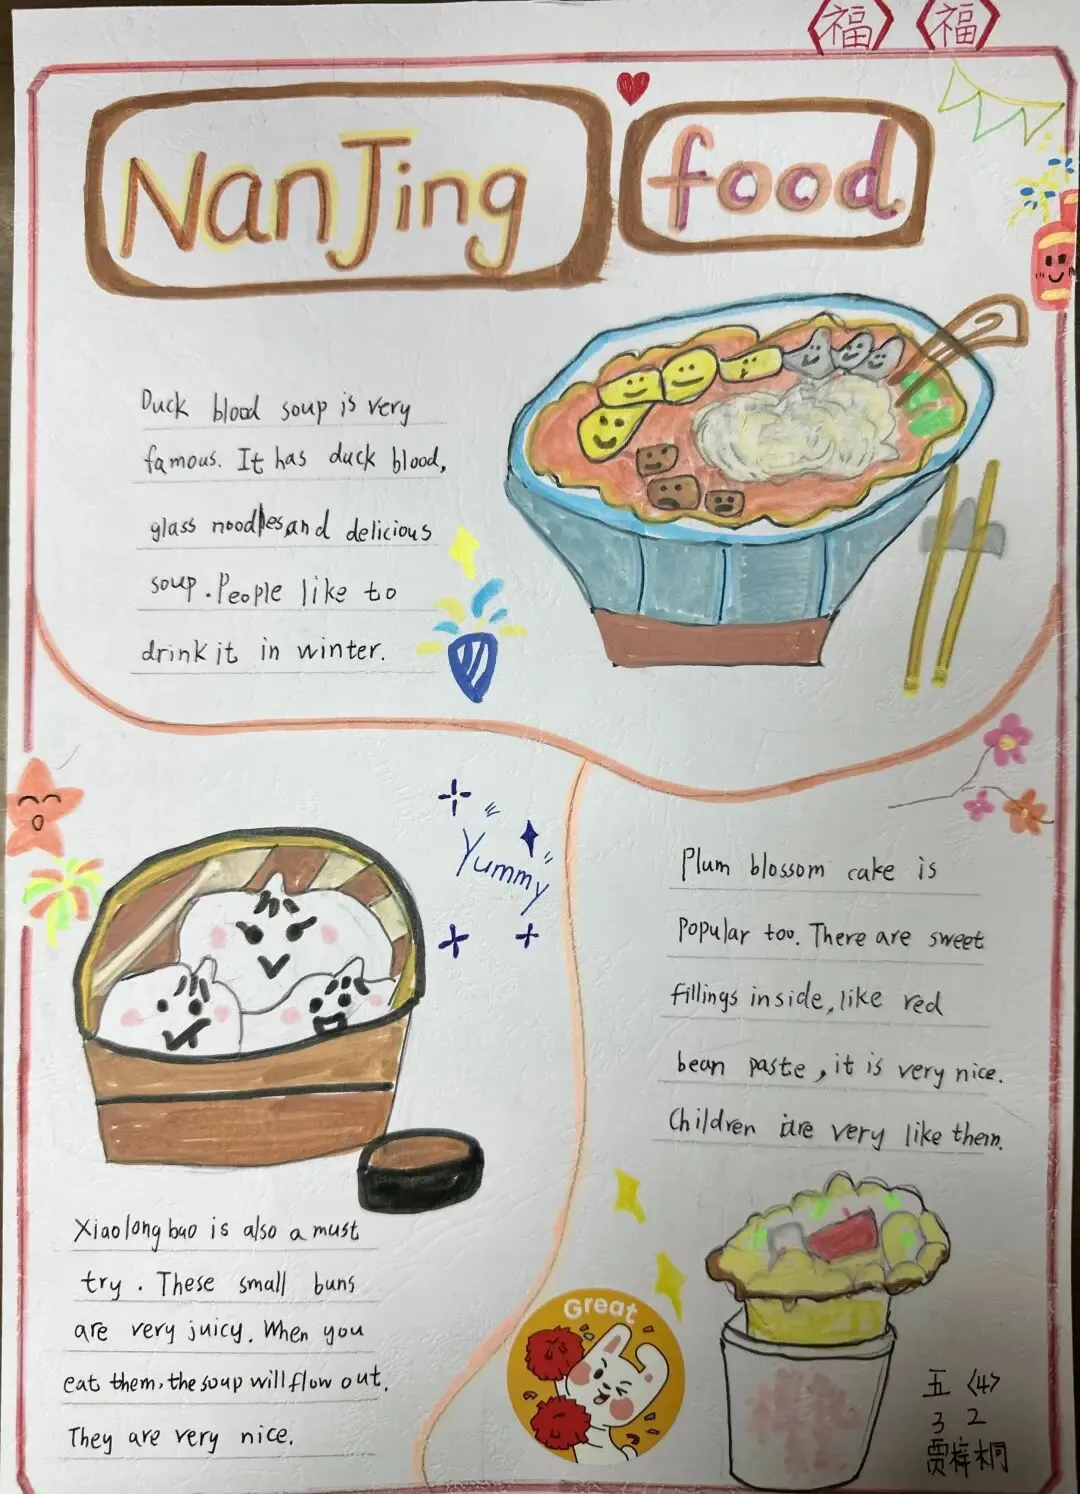 福 福
NanJing food
Duck blood soup is very
famous. It has duck blood,
glass noodles and delicious
soup. People like to
drink it in winter.
Yummy
Xiaolongbao is also a must
try. These small buns
are very juicy. When you
eat them, the soup will flow out.
They are very nice.
Plum blossom cake is
popular too. There are sweet
fillings inside, like red
bean paste, it is very nice.
Children are very like them.
Great
五〈4〉
3 2
贾梓桐